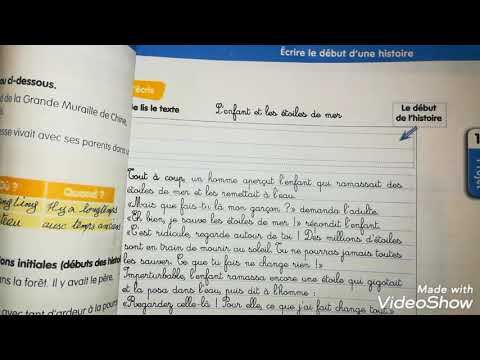 Écrire le début d'une histoire
ou ci-dessous.
de la Grande Muraille de Chine,
esse vivait avec ses parents dans u
Où ? Quand ?
Il y a longtemps
ons initiales (débuts des histoi
ans la forêt. Il y avait le père,
avec tant d'ardeur à la pour
écris
e lis le texte
L'enfant et les étoiles de mer
Le début
de l'histoire
Tout à coup, un homme aperçut l'enfant qui ramassait des
étoiles de mer et les remettait à l'eau.
«Mais que fais-tu là mon garçon ?» demanda l'adulte.
«Eh bien, je sauve les étoiles de mer !» répondit l'enfant.
«C'est ridicule, regarde autour de toi ! Des millions d'étoiles
sont en train de mourir au soleil. Tu ne pourras jamais toutes
les sauver. Ce que tu fais ne change rien !»
Imperturbable, l'enfant ramassa encore une étoile qui gigotait
et la posa dans l'eau, puis dit à l'homme :
«Regardez celle-là ! Pour elle, ce que j'ai fait change tout.»
Made with
VideoShow